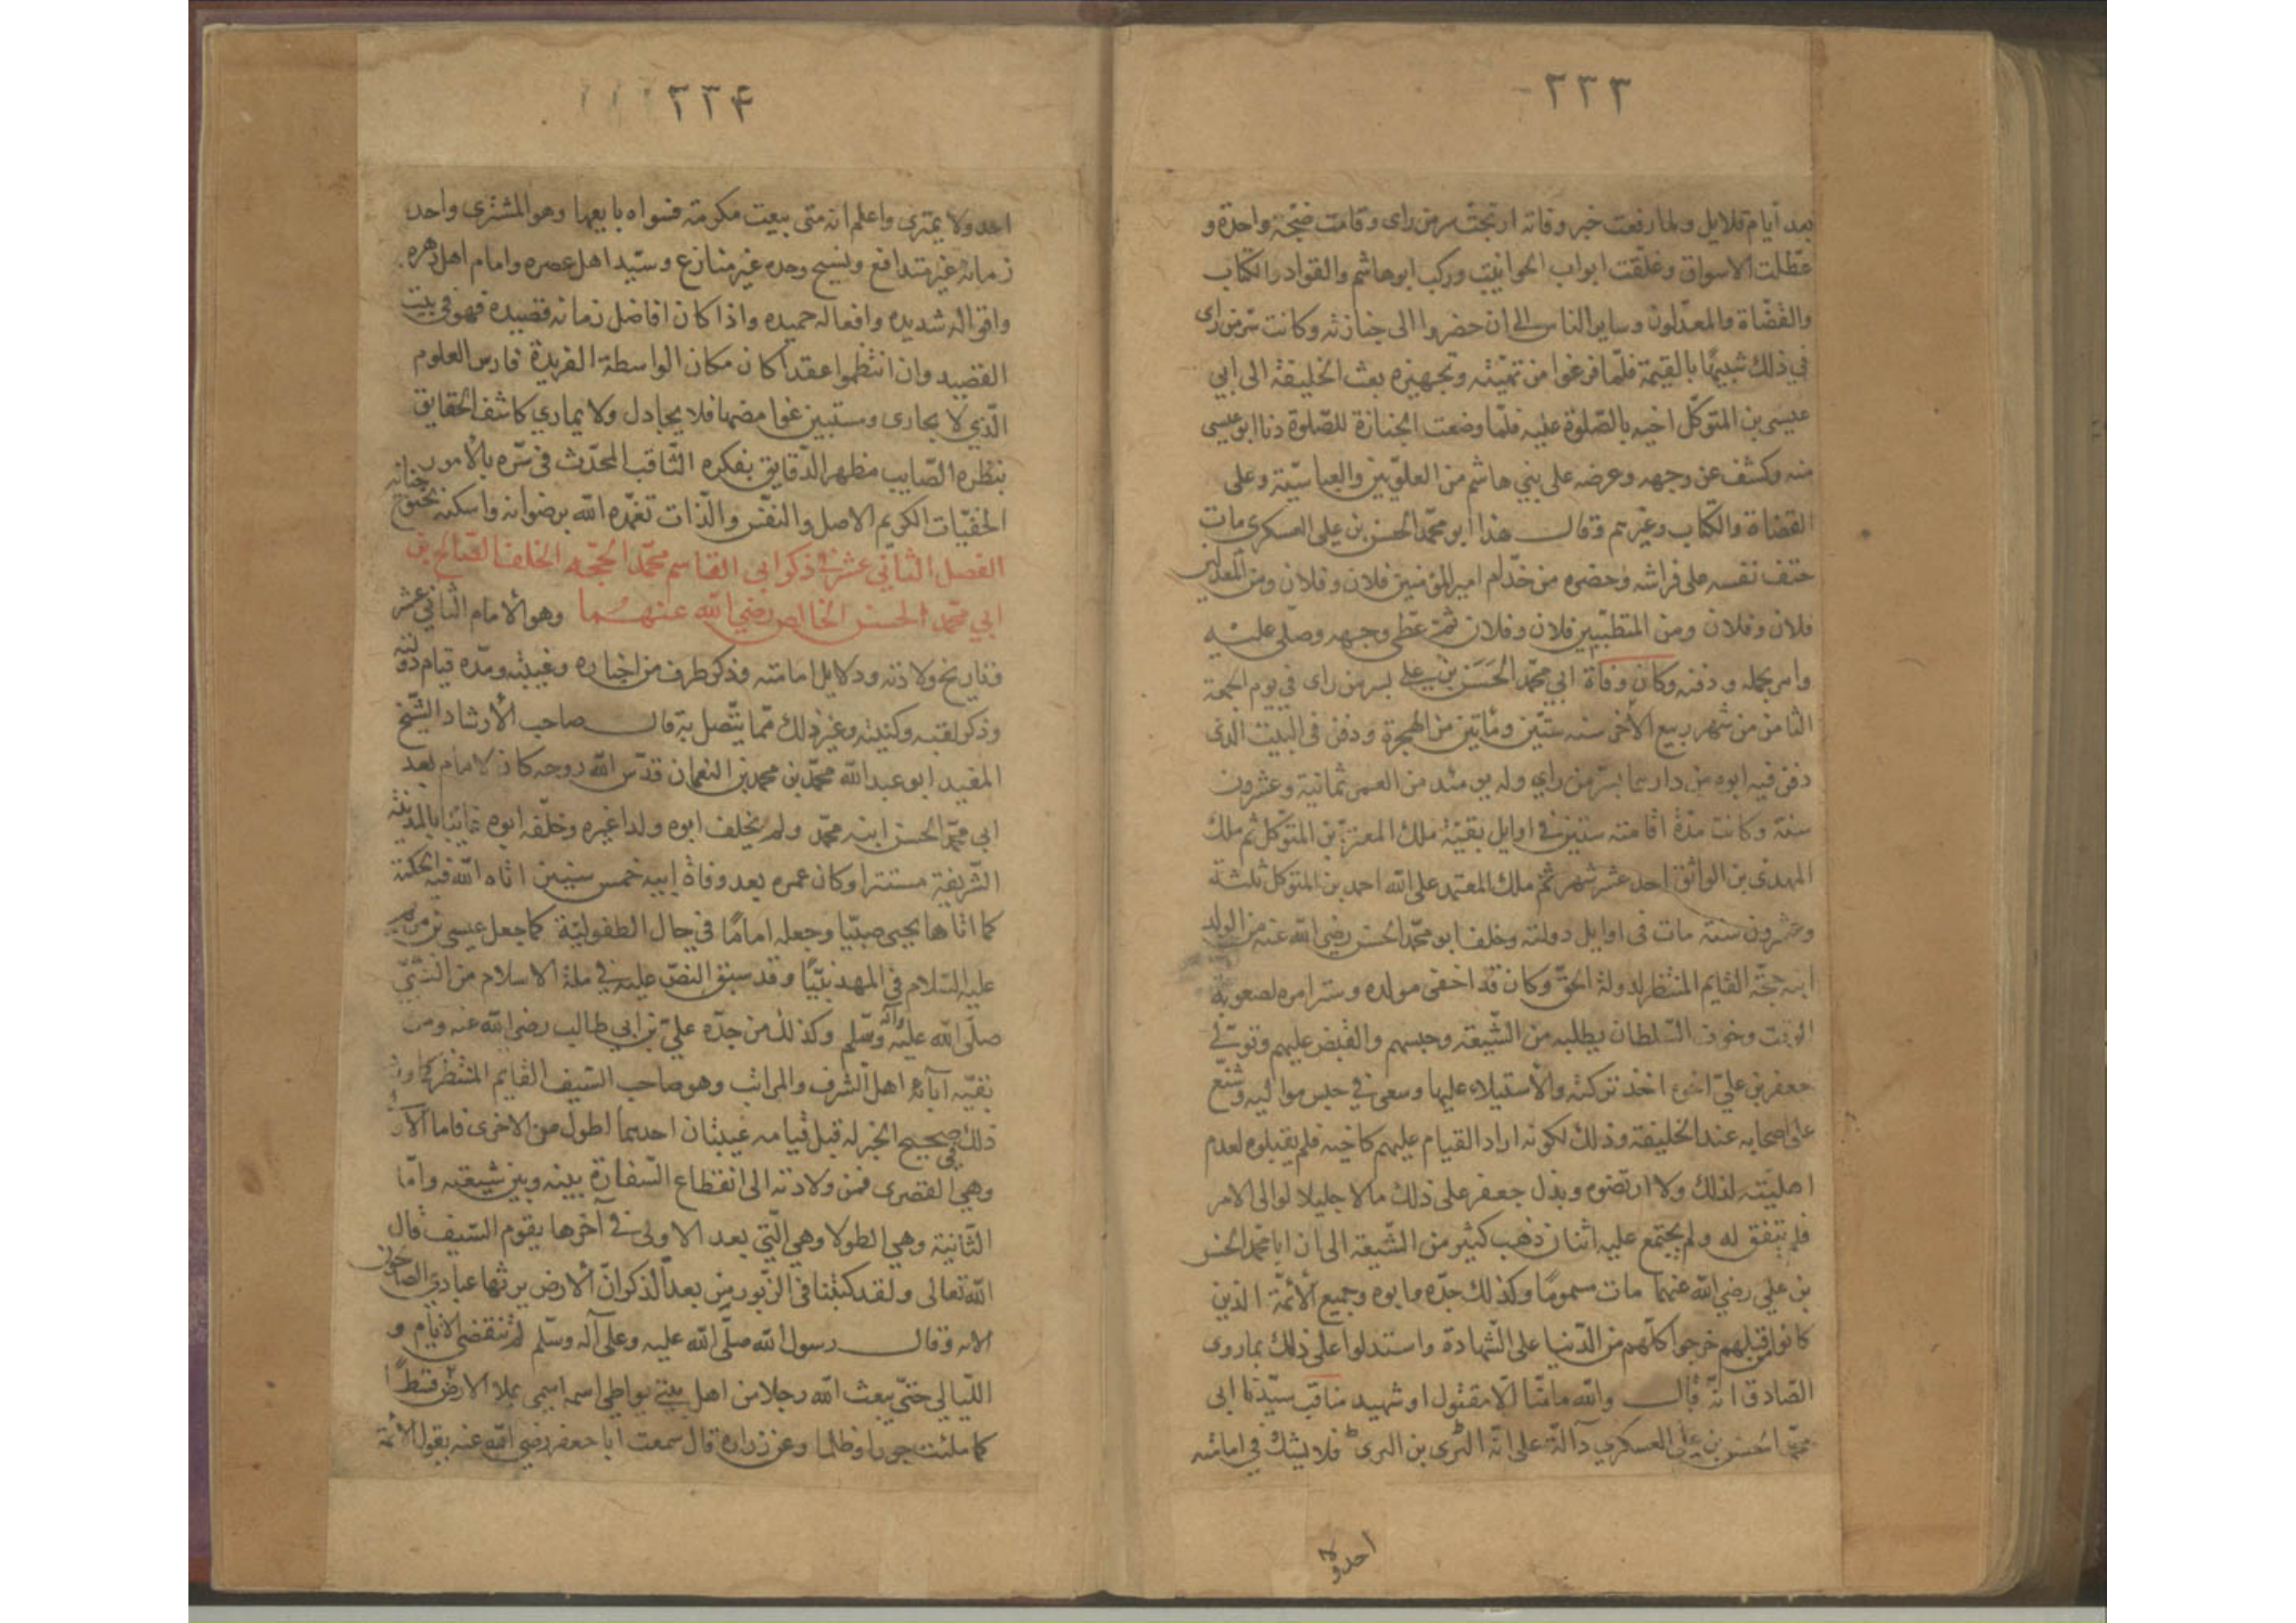 ٢٣٣
بعد أيام قلايل ولما رفعت خبر وفاته ارتجت سر من راى وقامت ضجّة واحدة و
عطّلت الاسواق وغلّقت ابواب الحوانيت وركب ابوهاشم والقواد والكتاب
والقضّاة والمعدّلون وساير الناس الى ان حضروا الى جنازته وكانت سرّ من راى
في ذلك شبيهًا بالقيمة فلمّا فرغوا من تهيئته وتجهيزه بعث الخليفة الى ابي
عيسى بن المتوكّل اخيه بالصّلوة عليه فلمّا وضعت الجنازة للصّلوة دنا ابو عيسى
منه وكشف عن وجهه وعرضه على بني هاشم من العلويّين والعباسيّة وعلى
القضاة والكتّاب وغيرهم وقال هذا أبو محمّد الحسن بن على العسكرى مات
حتف نفسه على فراشه وحضره من خدّام امير المؤمنين فلان وفلان ومن المعدلين
فلان وفلان ومن المتطبّبين فلان وفلان ثمّ غطّى وجهه وصلّى عليه
وامر بحمله ودفنه وكان وفاة ابي محمّد الحَسَن بن علي بسر من راى في يوم الجمعة
الثامن من شهر ربيع الأخر سنه ستّين ومأتين من الهجرة ودفن في البيت الذى
دفن فيه ابوه من دارهما بسرّ من راي وله يومئذ من العمر ثمانية وعشرون
سنة وكانت مدّة اقامته سنتين في اوايل بقيّة ملك المعتزّ بن المتوكّل ثم ملك
المهدى بن الواثق احد عشر شهر ثمّ ملك المعتمد على الله احمد بن المتوكل ثلثة
وعشرون سنة مات في اوايل دولته وخلف ابو محمّد الحسن رضي الله عنه من الولد
ابنه حجّة القايم المنتظر لدولة الحقّ وكان قد اخفى مولده وستر امره لصعوبة
الوقت وخوف السّلطان يطلبه من الشّيعة وحبسهم والقبض عليهم وتولّى
جعفر بن عليّ اخوه اخذ تركته والأستيلاء عليها وسعى في حبس مواليه وشنّع
على اصحابه عند الخليفة وذلك لكونه اراد القيام عليهم كاخيه فلم يقبلوه لعدم
اهليّته لذلك ولا ارتضوه وبذل جعفر على ذلك مالا جليلا لوالى الامر
فلم يتفق له ولم يجتمع عليه اثنان ذهب كثير من الشّيعة الى ان ابا محمّد الحسن
بن علي رضي الله عنهما مات مسمومًا وكذلك جدّه وابوه وجميع الأئمّة الذين
كانوا من قبلهم خرجوا كلّهم من الدّنيا على الشّهادة واستدلوا على ذلك بماروى
الصّادق انّه قال والله مامنّا الّا مقتول او شهيد مناقب سيّدنا ابى
محمّد الحسن بن علي العسكري دآلة على انّه السّرى بن السرى فلا يشك في امامته
احد ولا
٢٣۴
احد ولا يمترى واعلم انه متى بيعت مكرمته فسواه بايعها وهو المشترى واحد
زمانه غير متدافع ونسيج وحده غير منازع وسيّد اهل عصره وامام اهل دهره
واقواله شديده وافعاله حميده واذا كان افاضل زمانه قصيده فهو في بيت
القصيد وان انتظموا عقدا كان مكان الواسطة الفريدة فارس العلوم
الّذي لا يجارى ومستبين غوامضها فلا يجادل ولا يماري كاشف الحقايق
بنظره الصّايب مظهر الدّقايق بفكره الثّاقب المحدّث في سرّه بالأمور
الخفيّات الكريم الاصل والنفس والّذات تغمّده الله برضوانه واسكنه بحبوح جنانه
الفصل الثاني عشر في ذكر ابى القاسم محمّد الحجّه الخلف الصّالح بن
ابي محمّد الحسن الخالص رضي الله عنهما وهو الأمام الثّاني عشر
وتاريخ ولادته ودلايل امامته وذكر طرف من اخباره وغيبته ومدّه قيام دولته
وذكر لقبه وكنيته وغير ذلك ممّا يتّصل به قال صاحب الأرشاد الشّيخ
المفيد ابو عبد الله محمّد بن محمد بن النعمان قدّس الله روحه كان الامام بعد
ابي محمّد الحسن ابنه محمّد ولم يخلف ابوه ولدا غيره وخلّفه ابوه غائبا بالمدينة
الشّريفة مستترا وكان عمره بعد وفاة ابيه خمس سنين اتاه الله فيه الحكمة
كما اتاها يحيى صبيّا وجعله امامًا في حال الطفوليّة كما جعل عيسى بن مريم
عليه السّلام في المهد نبيًّا وقد سبق النصّ عليه في ملة الاسلام من النّبيّ
صلّى الله عليه وآله وسلّم وكذلك من جدّه عليّ بن ابي طالب رضي الله عنه ومن
بقيّه آبائه اهل الشرف والمراتب وهو صاحب السّيف القايم المنتظر كما ورد
ذلك في صحيح الخبر له قبل قيامه غيبتان احدهما اطول من الاخرى فاما الاو
وهي القصرى فمن ولادته الى انقطاع السّفارة بينه وبين شيعته وامّا
الثّانية وهي الطولا وهي الّتي بعد الاولى في آخرها يقوم السّيف قال
الله تعالى ولقد كتبنا في الزّبور من بعد الذكر انّ الأرض يرثها عبادي الصالحون
الايه وقال رسول الله صلّى الله عليه وعلى آله وسلّم لم تنقضى الأيّام و
اللّيالي حتّى يبعث الله رجلا من اهل بيتي يواطى اسمه اسمى يملا الارض قسطًا
كما ملئت جورا وظلما وعن زراره قال سمعت ابا جعفر رضي الله عنه يقول الأئمّة